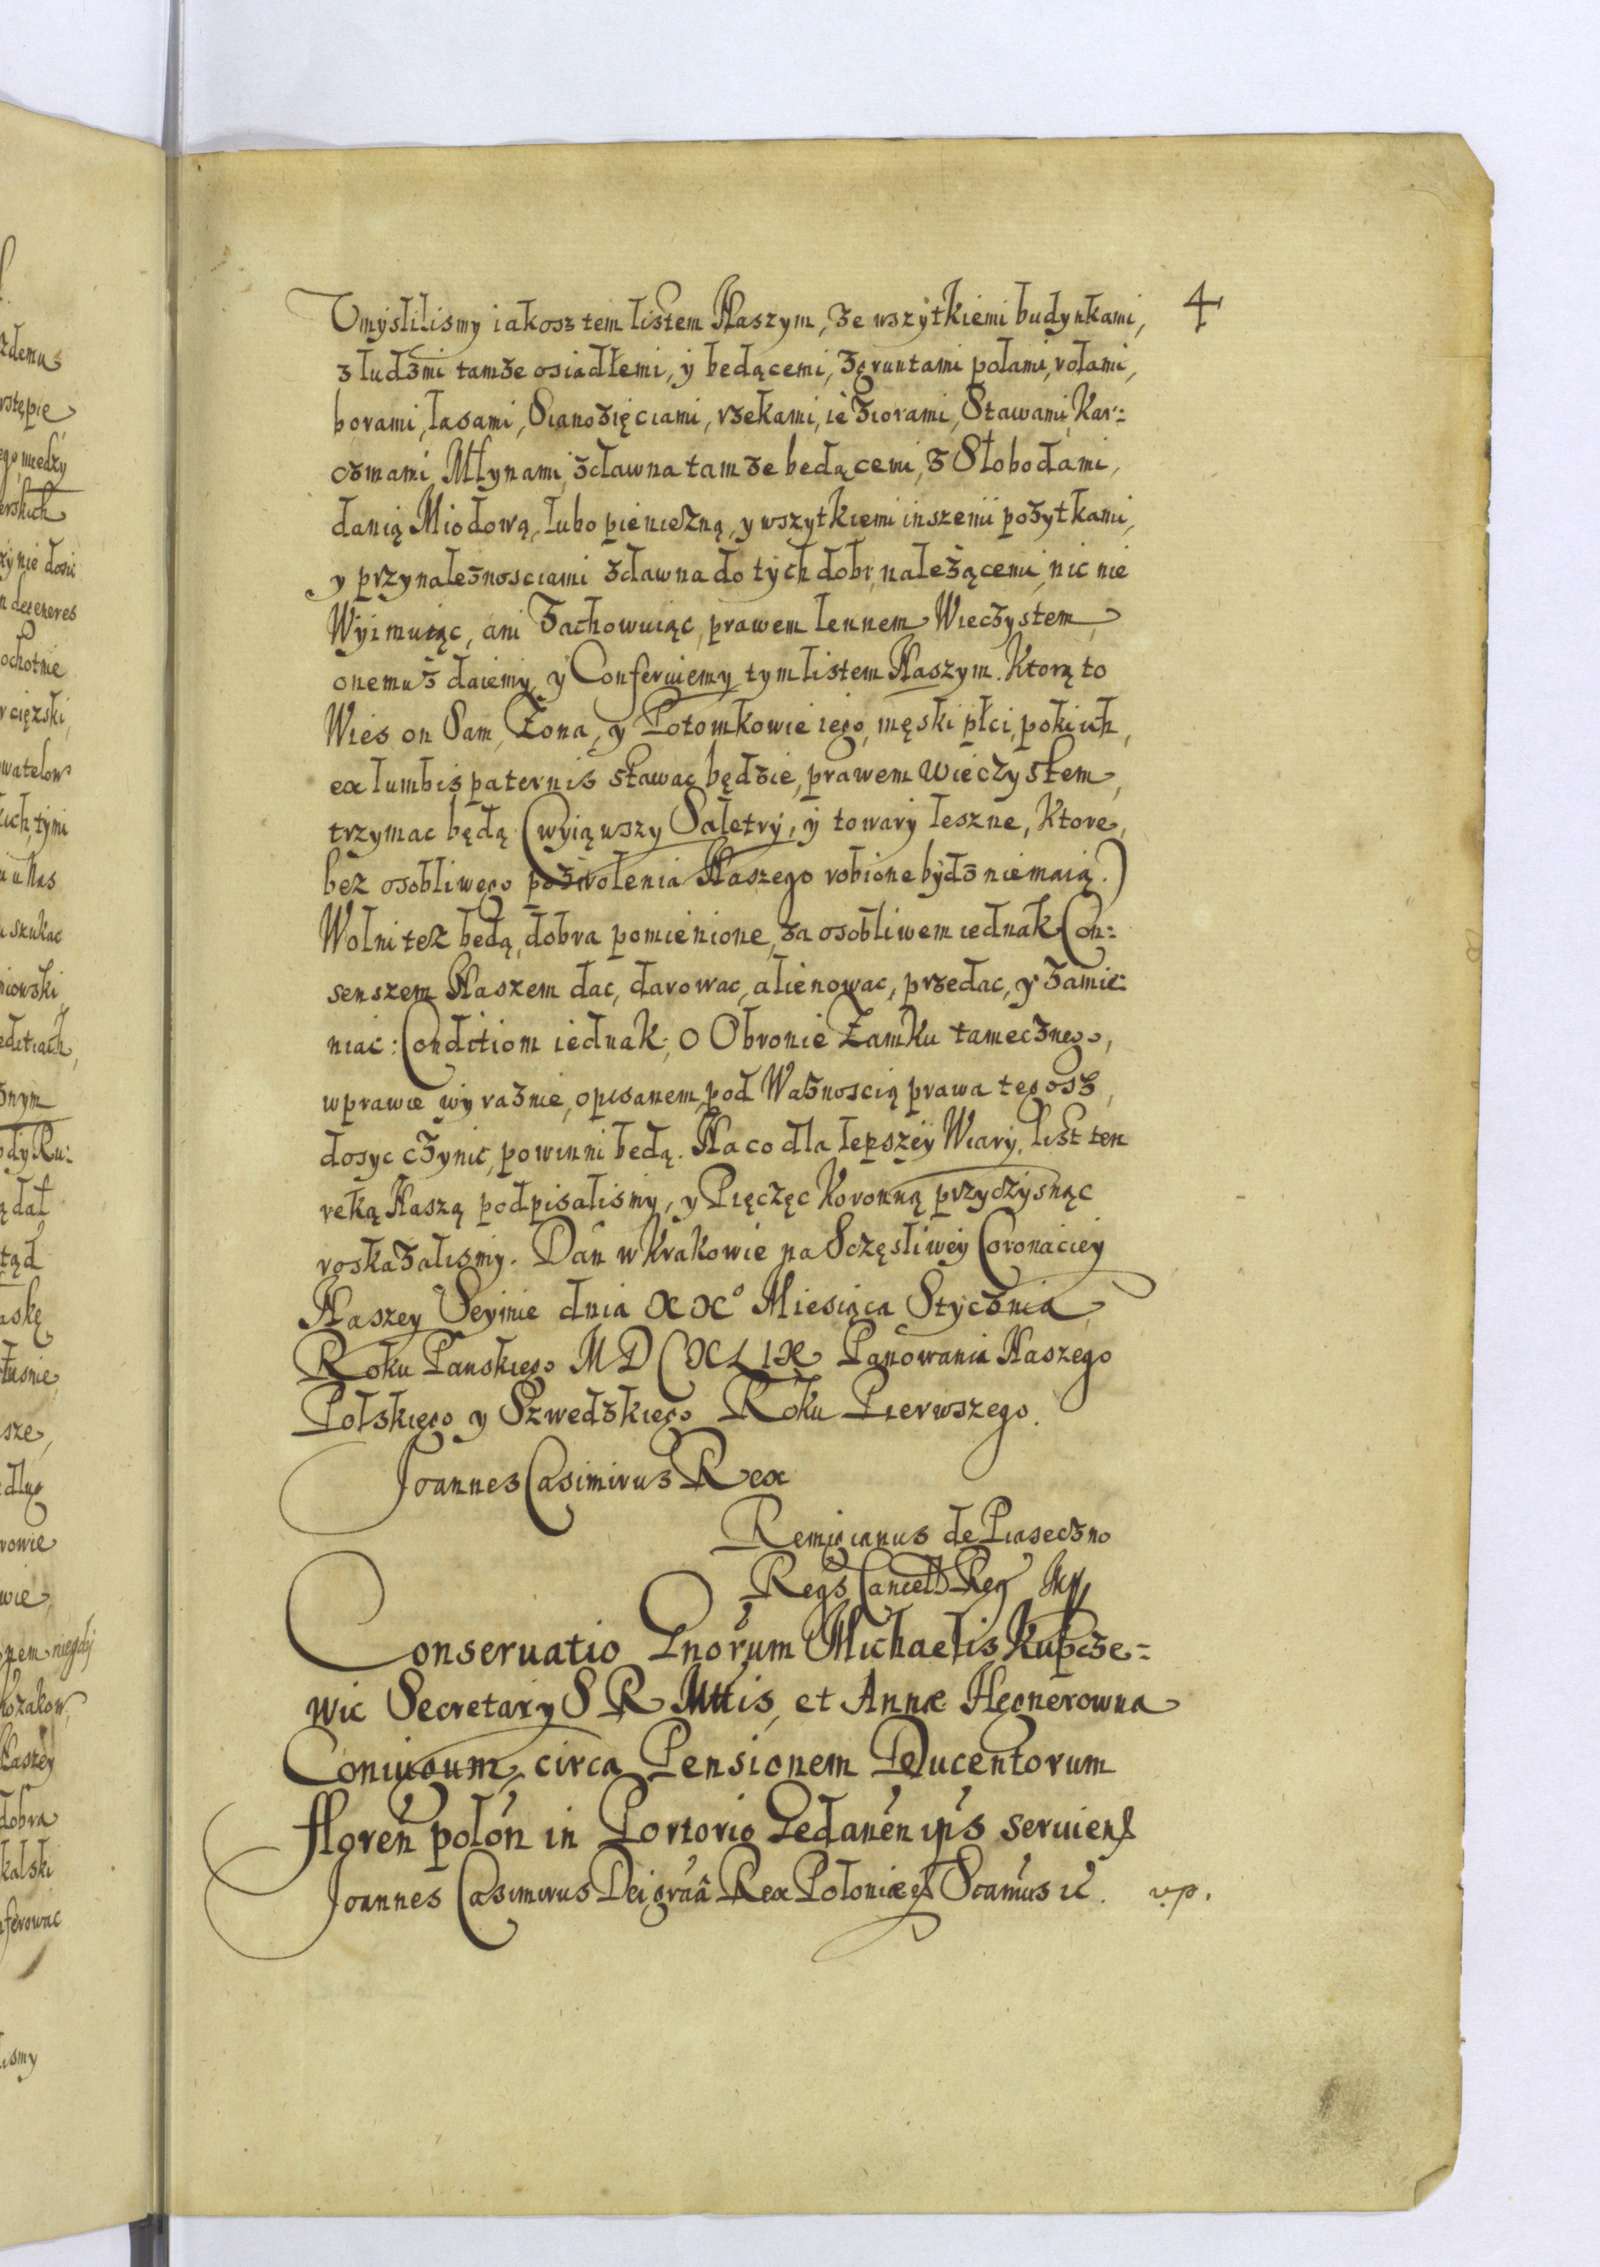 4
Umyslilismy iakosz tem listem Naszym, ze wszytkiemi budynkami,
z ludzmi tamze osiadłemi, y będącemi, z gruntami polami, rolami,
borami, lasami, Sianozięciami, rzekami, ieziorami, Stawami, Kar=
czmami, Młynami, zdawna tamze będącemi, z Słobodami,
danią Miodową, lubo pienieżną, y wszytkiemi inszemi pożytkami,
y przynależnosciami zdawna do tych dobr należącemi, nic nie
Wyimuiąc, ani Zachowuiąc, prawem lennem Wieczystem
onemuż daiemy y Conferuiemy tym listem Naszym. Ktorą to
Wies on Sam, Żona, y Potomkowie iego, męski płci, poki ich
ex lumbis paternis stawac będzie, prawem wieczystem,
trzymac będą (wyiąwszy Saletry, y towary leszne, Ktore
bez osobliwego pozwolenia Naszego robione bydz nie maią.)
Wolni tez będą, dobra pomienione, za osobliwem iednak Con=
senszem Naszem dac, darowac, alienowac, przedac, y zamie=
niac: Conditiom iednak, o Obronie Zamku tamecznego,
w prawie wyraznie, opisanem, pod Ważnoscią prawa tegosz,
dosyc czynic, powinni będą. Na co dla lepszey Wiary, list ten
ręką Naszą podpisalismy, y Pięczęc Koronną przyczisnąc
roskazalismy. Dan w Krakowie na Sczęsliwey Coronaciey
Naszey Seymie dnia XXº Miesiąca Stycznia
Roku Panskiego MDCXLIX Panowania Naszego
Polskiego y Szwedzkiego Roku Pierwszego.
Joannes Casimirus Rex
Remigianus de Piaseczno
Regs Cancell Reg Mp
Conseruatio Gnorum Michaelis Kupcze=
wic Secretary S R Mttis, et Annæ Hegnerowna
Coniugum, circa Pensionem Ducentorum
floren polon in Portorio Gedanen ips seruien
Joannes Casimirus Dei graa Rex Poloniæ Scamus
v.p.